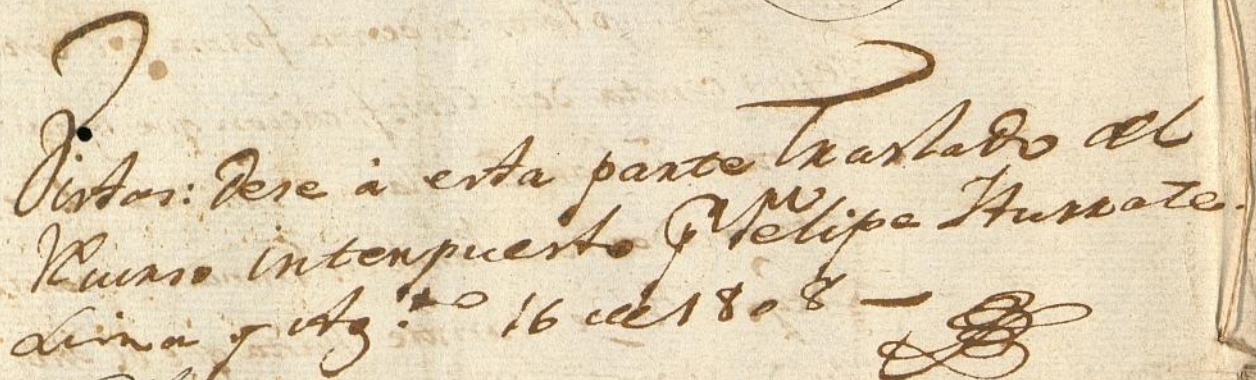 Vistos: Dese à esta parte Traslado del
Recurso interpuesto pr Felipe Iturrate.
Lima y Agto 16 de 1808 —